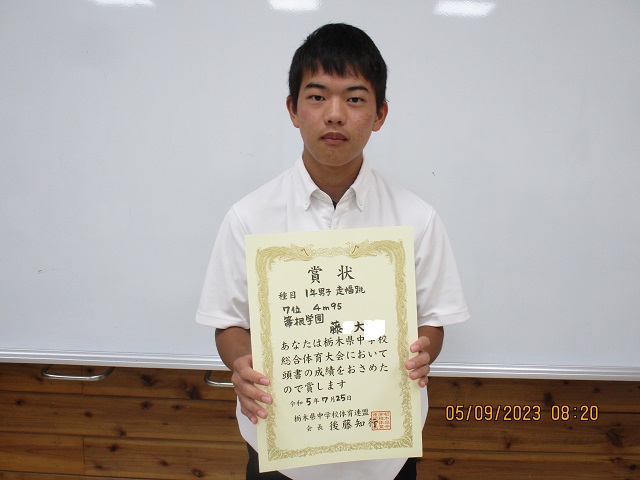 賞状
種目 1年男子 走幅跳
7位 4m95
箒根学園
藤 大
あなたは栃木県中学校
総合体育大会において
頭書の成績をおさめた
ので賞します
令和5年7月25日
栃木県中学校体育連盟
会長 後藤知
05/09/2023 08:20